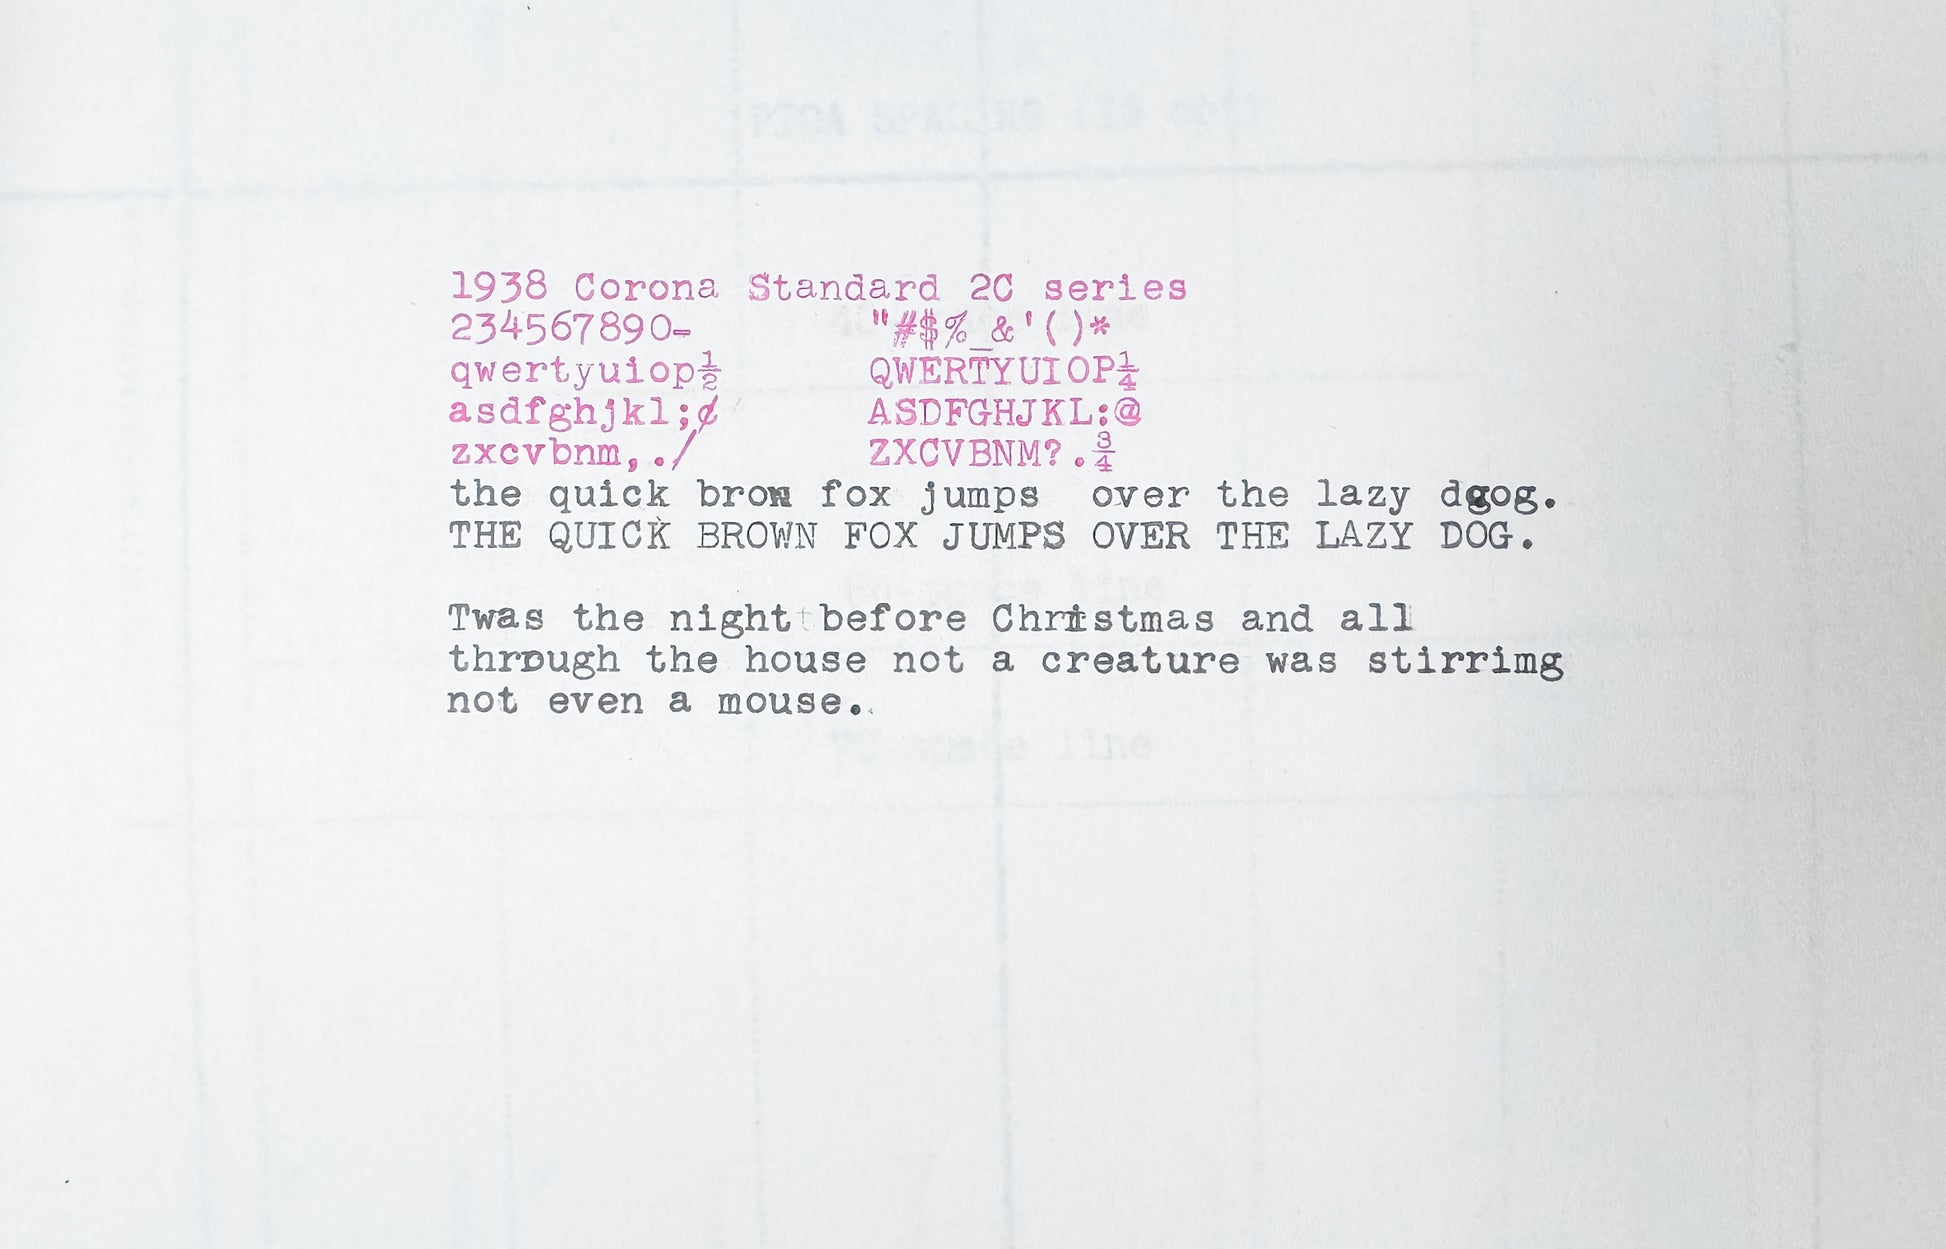 PICA SPACING
1938 Corona Standard 2C series
234567890-          "#$%_&'()*
qwertyuiop½      QWERTYUIOP¼
asdfghjkl;¢      ASDFGHJKL:@
zxcvbnm,./       ZXCVBNM?.¾
the quick brow fox jumps  over the lazy dgog.
THE QUICK BROWN FOX JUMPS OVER THE LAZY DOG.
Twas the night before Christmas and all
through the house not a creature was stirrimg
not even a mouse.
line
line